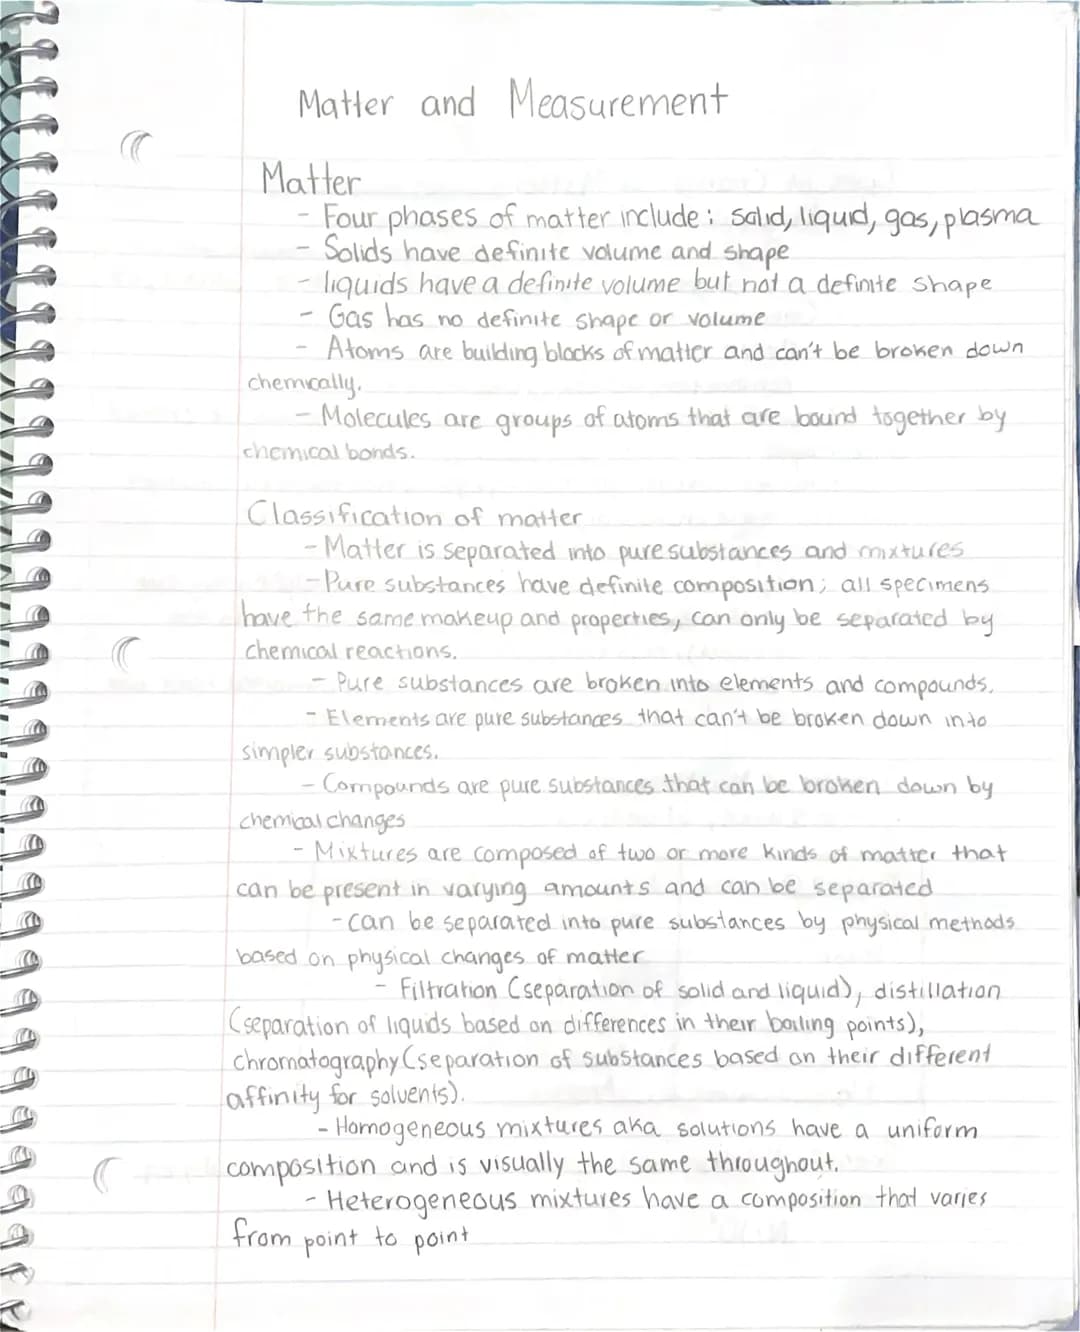 Matter and Measurement
Matter
- Four phases of matter include: solid, liquid, gas, plasma
- Solids have definite volume and shape
- liquids have a definite volume but not a definite shape
- Gas has no definite shape or volume
- Atoms are building blocks of matter and can't be broken down
chemically.
- Molecules are groups of atoms that are bound together by
chemical bonds.
Classification of matter
- Matter is separated into pure substances and mixtures
- Pure substances have definite composition; all specimens
have the same makeup and properties, can only be separated by
chemical reactions.
- Pure substances are broken into elements and compounds.
- Elements are pure substances that can't be broken down into
simpler substances.
- Compounds are pure substances that can be broken down by
chemical changes
- Mixtures are composed of two or more kinds of matter that
can be present in varying amounts and can be separated
- can be separated into pure substances by physical methods
based on physical changes of matter
- Filtration (separation of solid and liquid), distillation
(separation of liquids based on differences in their boiling points),
chromatography (separation of substances based on their different
affinity for solvents).
- Homogeneous mixtures aka solutions have a uniform
composition and is visually the same throughout.
- Heterogeneous mixtures have a composition that varies
from point to point